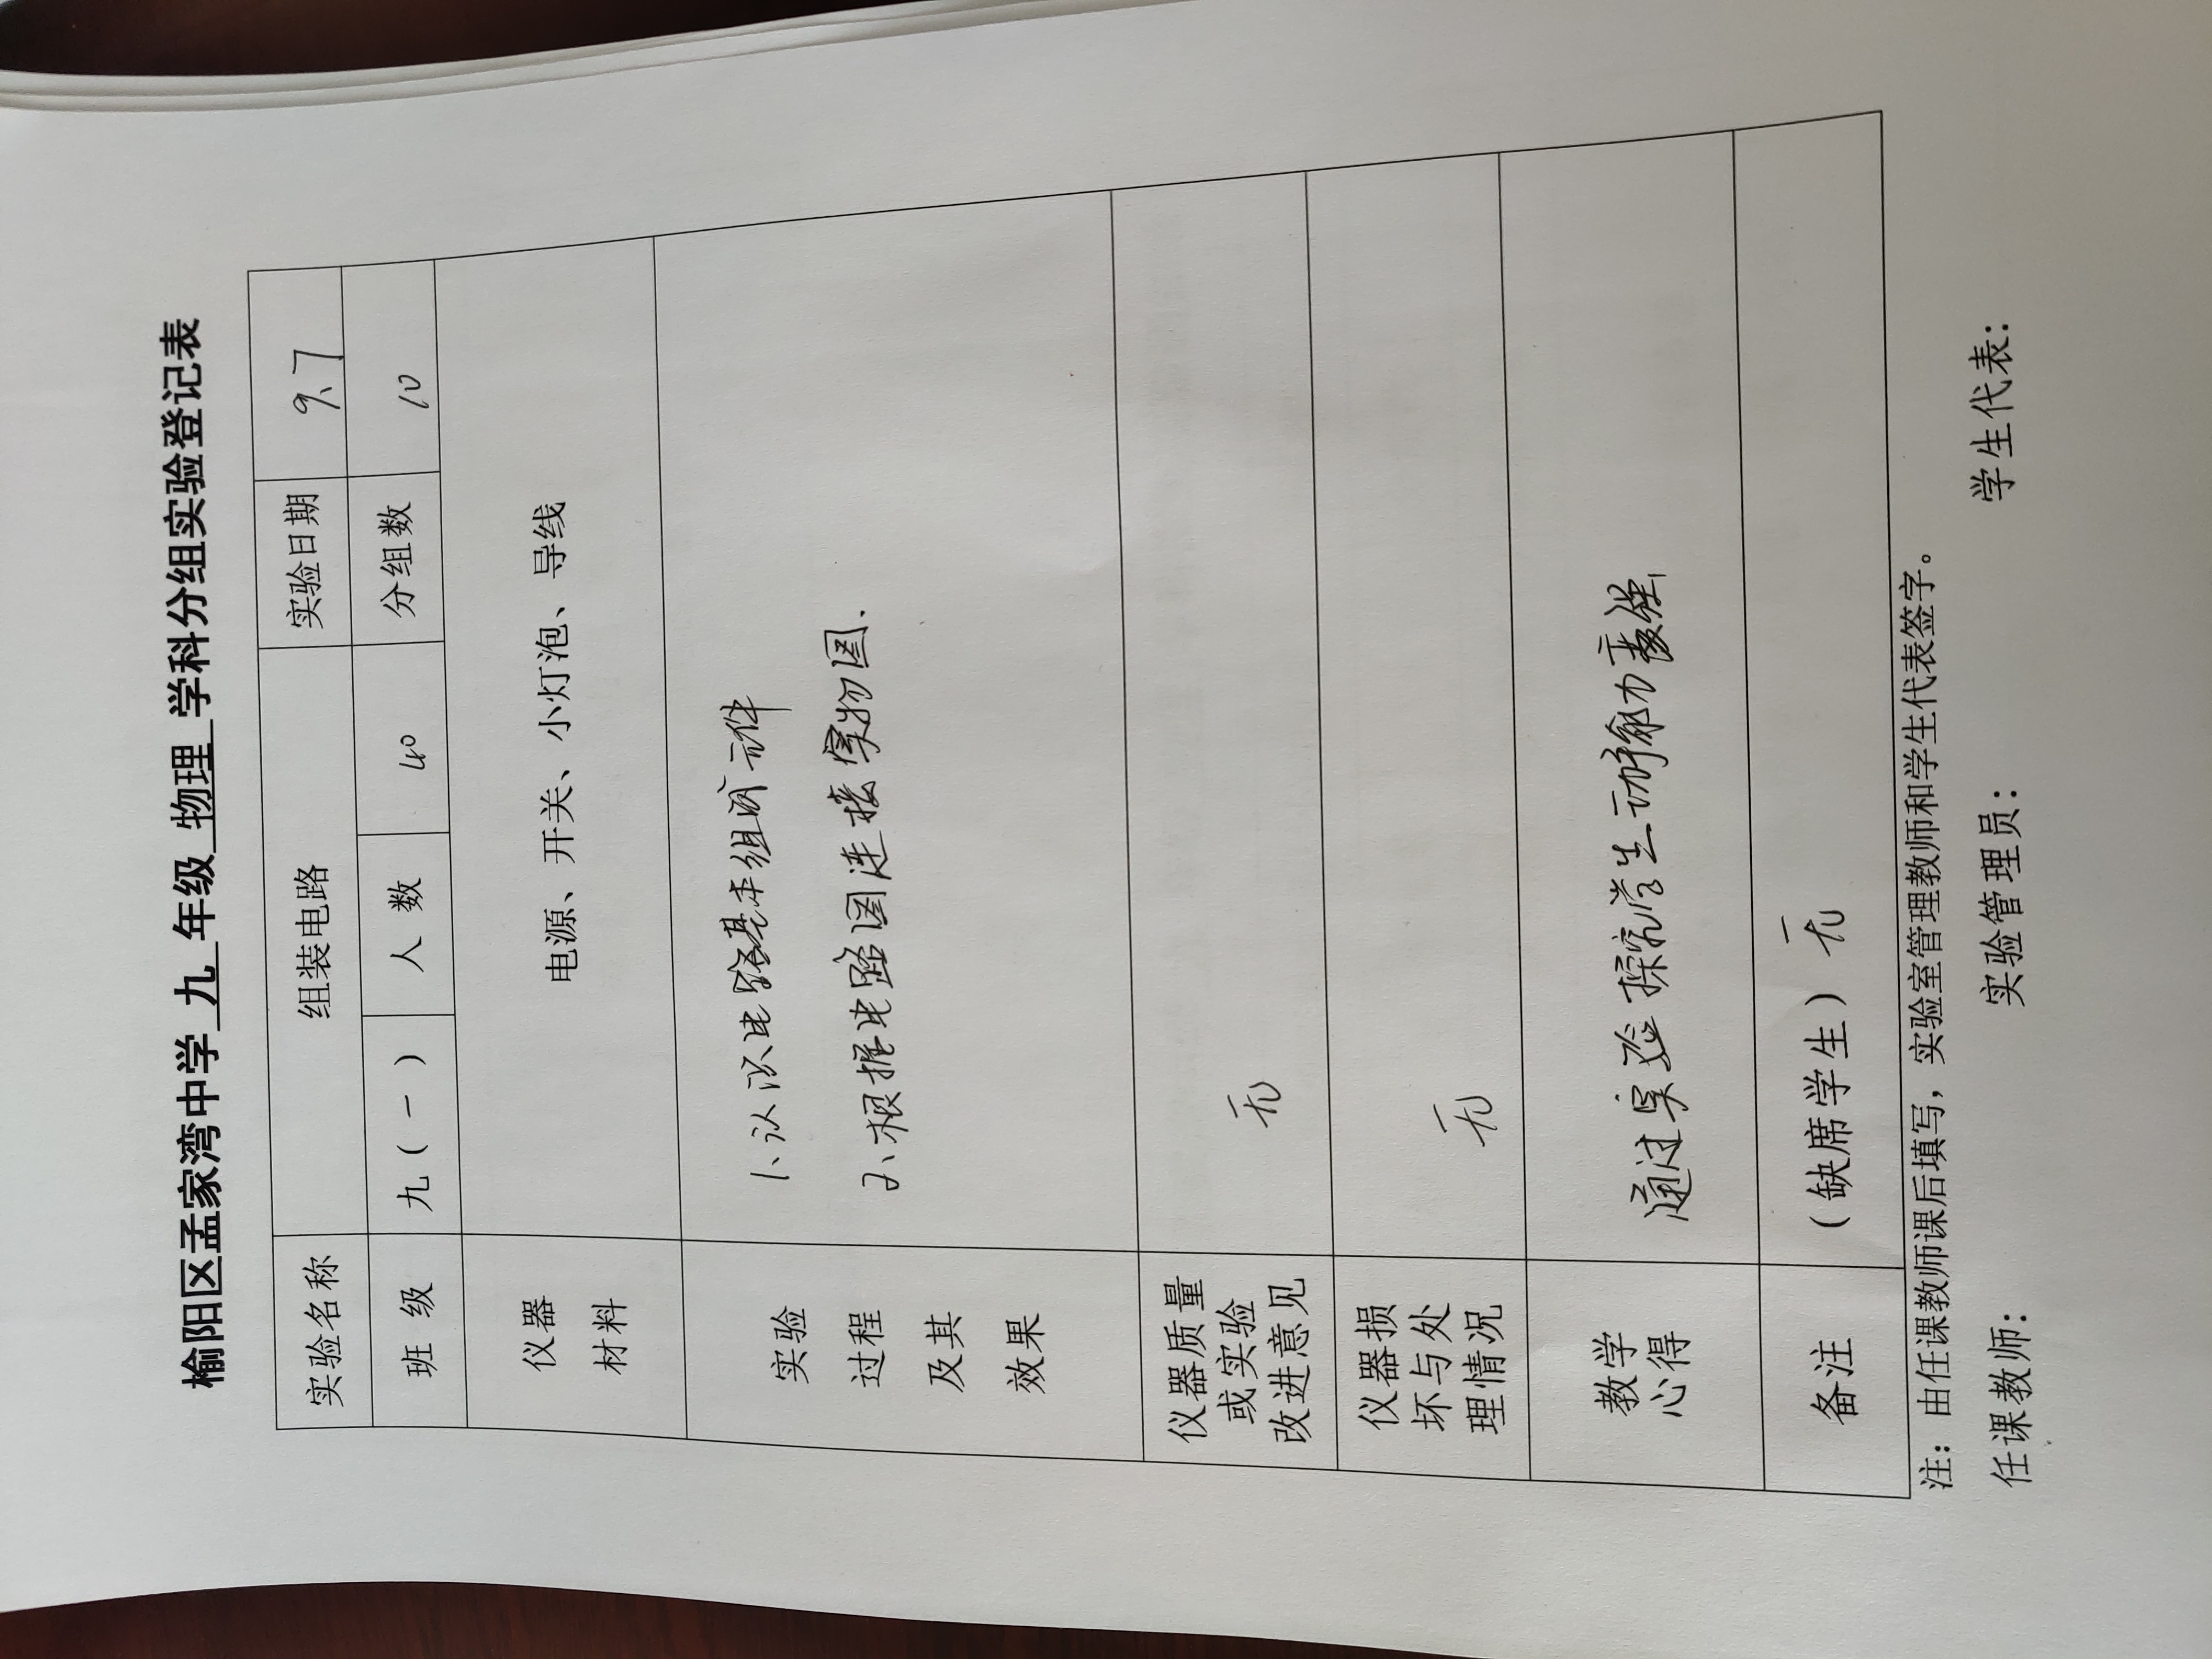 榆阳区孟家湾中学 九 年级 物理 学科分组实验登记表
实验名称 组装电路 实验日期 9、7
班 级 九(一) 人 数 40 分组数 10
仪器
材料
电源、开关、小灯泡、导线
实验
过程
及其
效果
1、认识电路基本组成元件
2、根据电路图连接实物图.
仪器质量
或实验
改进意见
无
仪器损
坏与处
理情况
无
教学
心得
通过实验探究学生动手能力变强
备注 (缺席学生) 无
注：由任课教师课后填写，实验室管理教师和学生代表签字。
任课教师： 实验管理员： 学生代表：